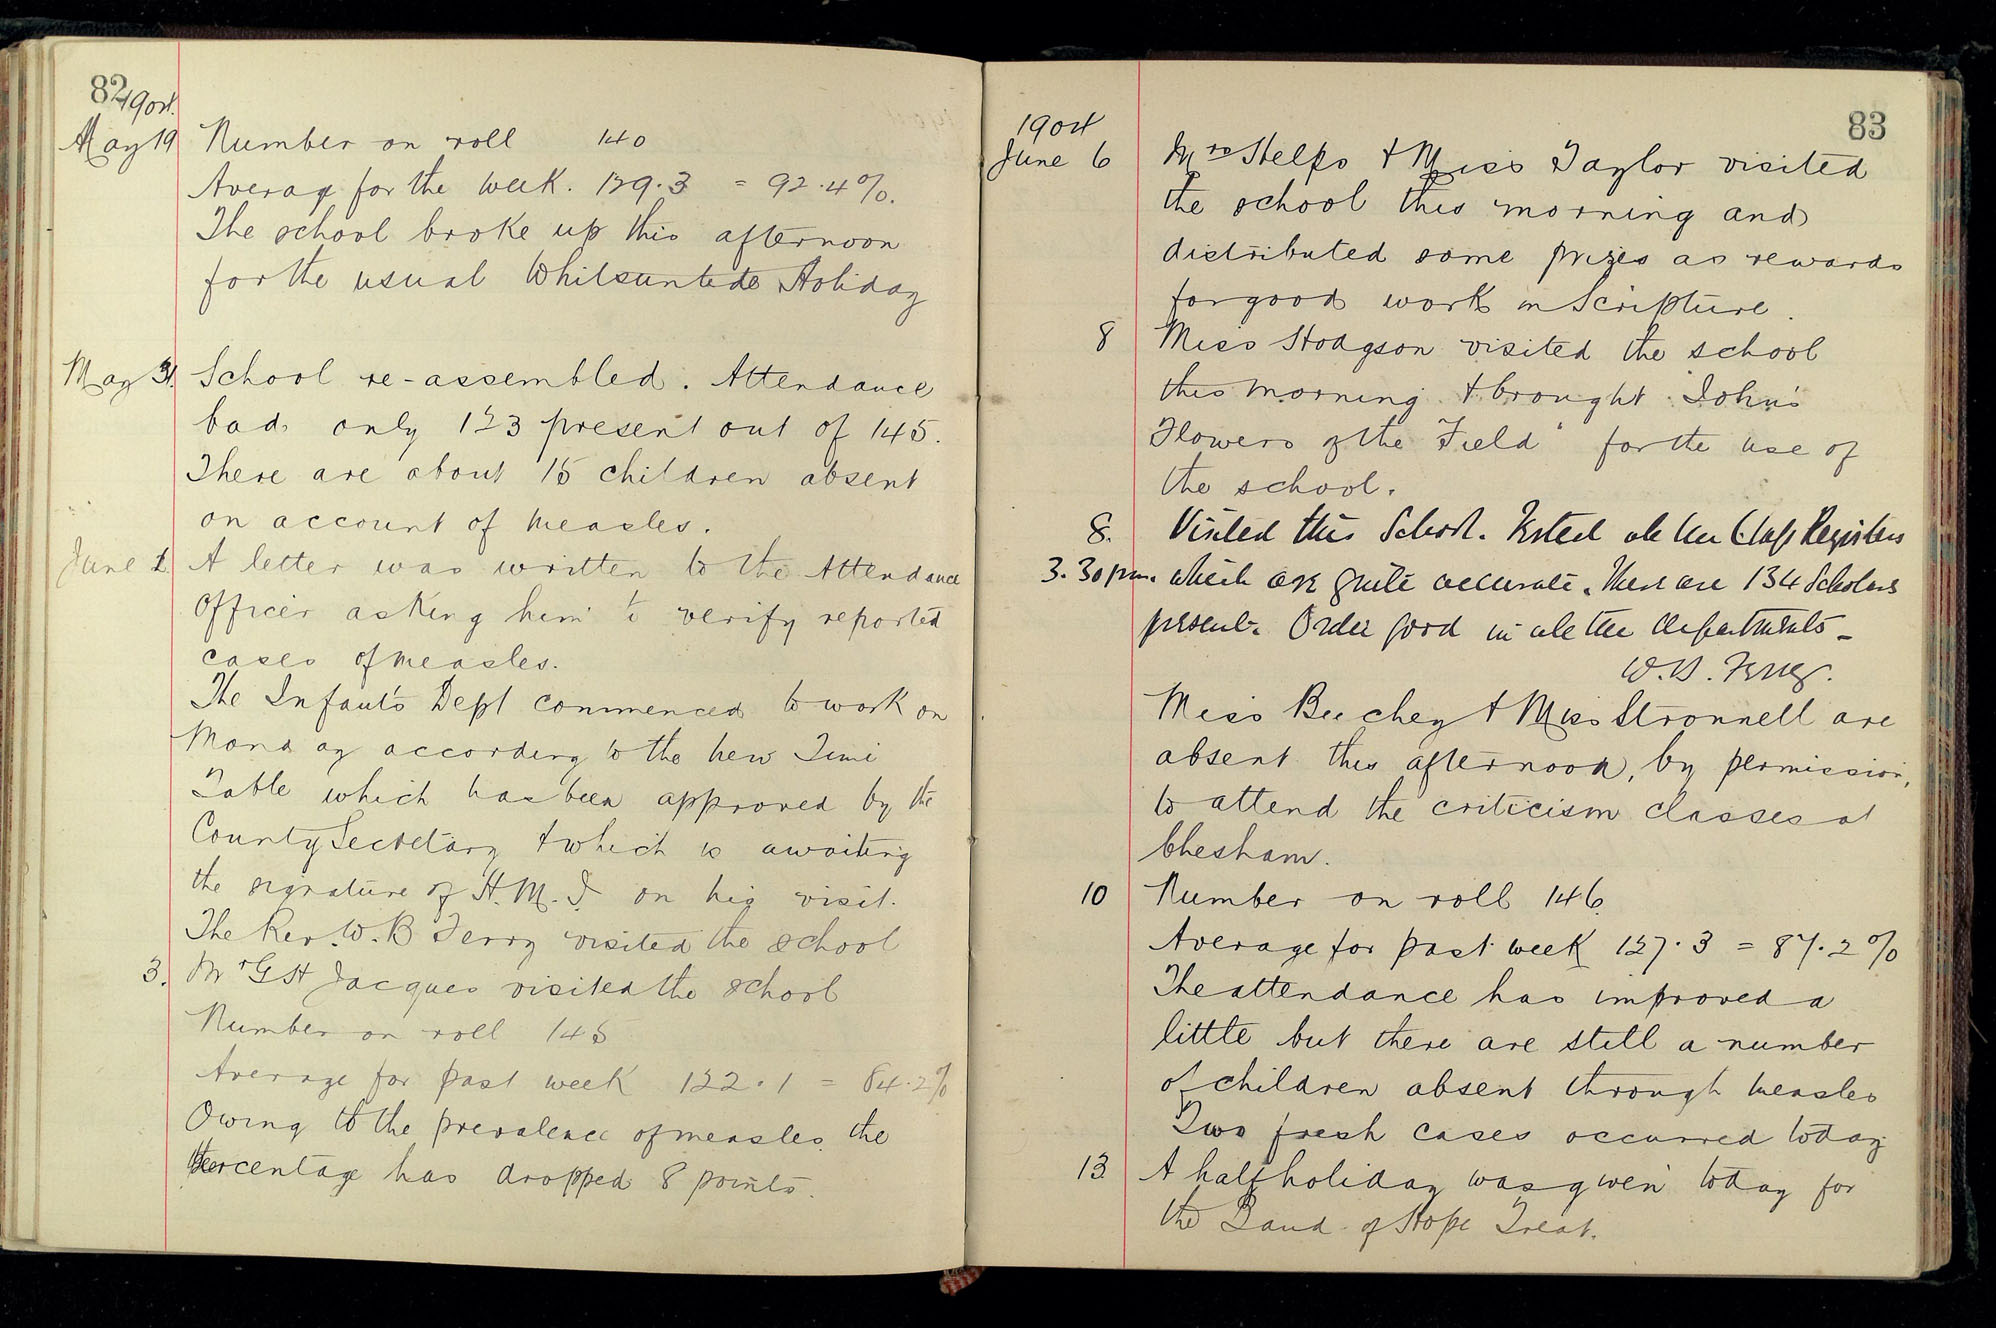 82
1904.
May 19 Number on roll 140
Average for the week. 129.3 = 92.4%.
The school broke up this afternoon
for the usual Whitsuntide Holiday
May 31. School re-assembled. Attendance
bad, only 123 present out of 145.
There are about 15 children absent
on account of measles.
June 1. A letter was written to the Attendance
Officer asking him to verify reported
cases of measles.
The Infants Dept commenced to work on
Monday according to the new Time
Table which has been approved by the
County Secretary & which is awaiting
the signature of H.M.I. on his visit.
The Rev. W.B Terry visited the school
3. Mr G H Jacques visited the school
Number on roll 145
Average for past week 122.1 = 84.2%
Owing to the prevalence of measles the
percentage has dropped 8 points.
83
1904
June 6 Mrs Helps & Miss Taylor visited
the school this morning and
distributed some prizes as rewards
for good work in Scripture.
8 Miss Hodgson visited the school
this morning & brought "John's
Flowers of the Field" for the use of
the school.
8. Visited this School. Tested all the Class Registers
3.30 pm. which are quite accurate. There are 134 Scholars
present. Order good in all the departments_
W.B. Terry.
Miss Beechey & Miss Stronnell are
absent this afternoon, by permission,
to attend the criticism classes at
Chesham.
10 Number on roll 146.
Average for past week 127.3 = 87.2%
The attendance has improved a
little but there are still a number
of children absent through measles
Two fresh cases occurred today
13. A half holiday was given today for
the Band of Hope Treat.